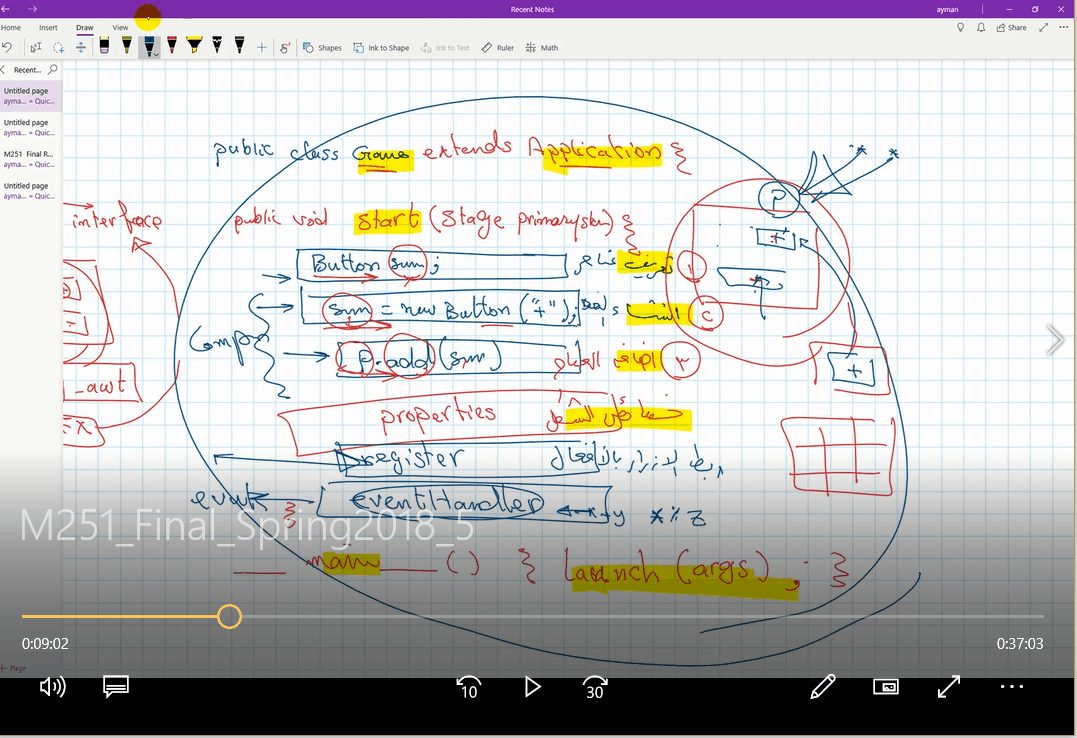 Recent Notes
ayman
Home Insert Draw View
Share
Shapes Ink to Shape Ink to Text Ruler Math
Recent...
Untitled page
ayma... » Quic...
Untitled page
ayma... » Quic...
M251 Final R...
ayma... » Quic...
Untitled page
ayma... » Quic...
public class Game extends Application {
interface
public void start (Stage primarystage) {
Button sum;
تعريف
sum = new Button ("+");
P.add (sum)
اضافة
_awt
properties
register
event
eventHandler
x+y
}
M251_Final_Spring2018_5
main ( ) { launch (args) ; }
P
+
+
0:09:02
0:37:03
+ Page
10
30